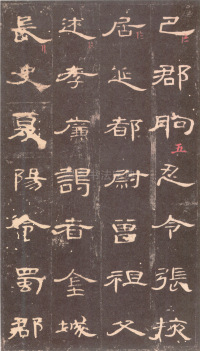 巴郡朐忍令張掖
居延都尉曾祖父
述孝廉謁者金城
長史夏陽令蜀郡
五